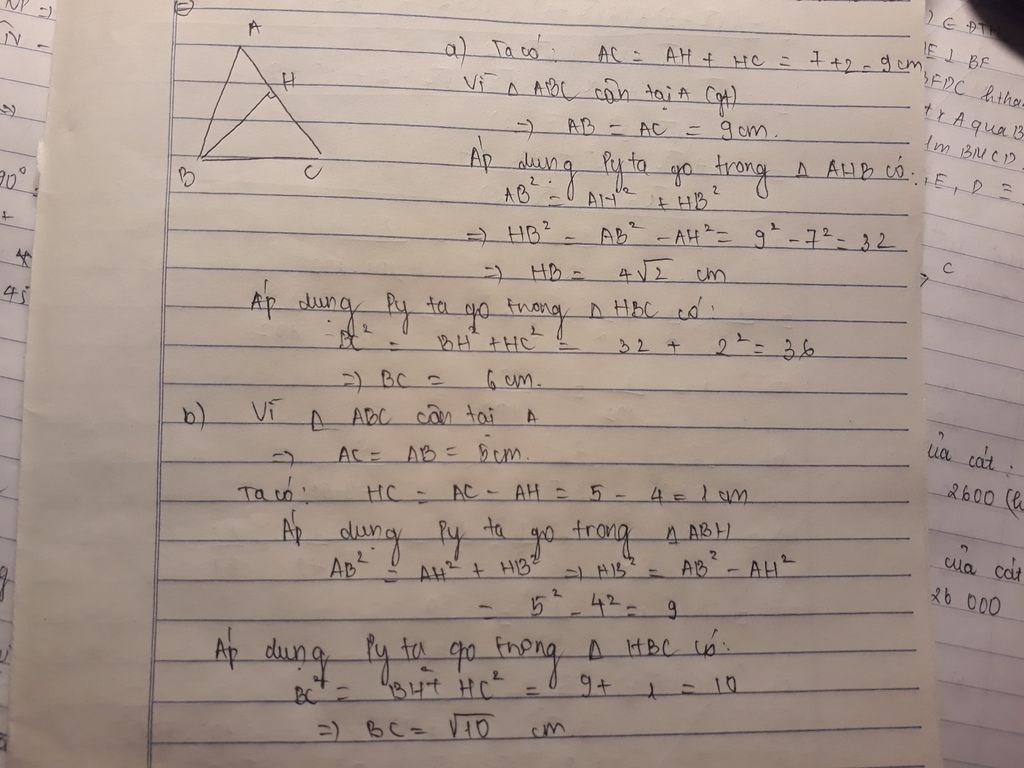 A
H
B
C
a) Ta có: AC = AH + HC = 7 + 2 = 9 cm
Vì Δ ABC cân tại A (gt)
=> AB = AC = 9 cm.
Áp dụng Py ta go trong Δ AHB có:
AB² = AH² + HB²
=> HB² = AB² - AH² = 9² - 7² = 32
=> HB = 4√2 cm
Áp dụng Py ta go trong Δ HBC có:
BC² = BH² + HC² = 32 + 2² = 36
=> BC = 6 cm.
b) Vì Δ ABC cân tại A
=> AC = AB = 5 cm.
Ta có: HC = AC - AH = 5 - 4 = 1 cm
Áp dụng Py ta go trong Δ ABH
AB² = AH² + HB² => HB² = AB² - AH²
= 5² - 4² = 9
Áp dụng Py ta go trong Δ HBC có:
BC² = BH² + HC² = 9 + 1 = 10
=> BC = √10 cm
90°
E ⊥ BF
A qua B
BMCD
E, D =
C
của cát
2600
của cát
26 000